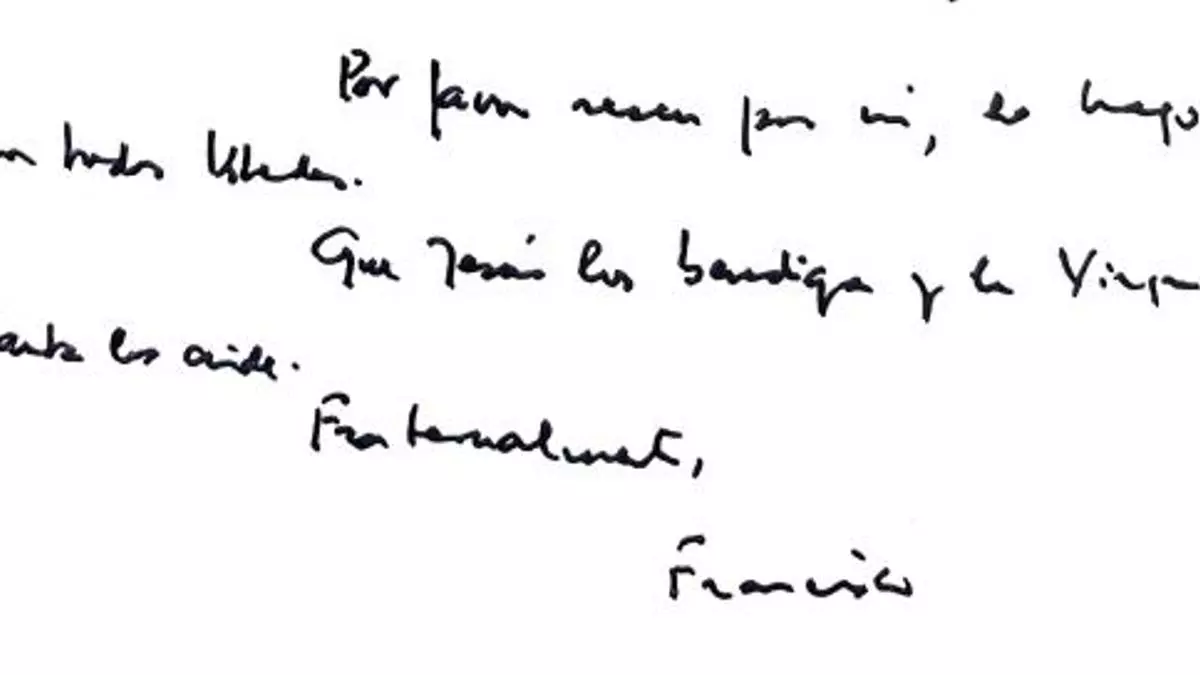 Por favor recen por mi, lo hago
todos Ustedes.
Que Jesús los bendiga y la Virgen
los cuide.
Fraternalmente,
Francisco